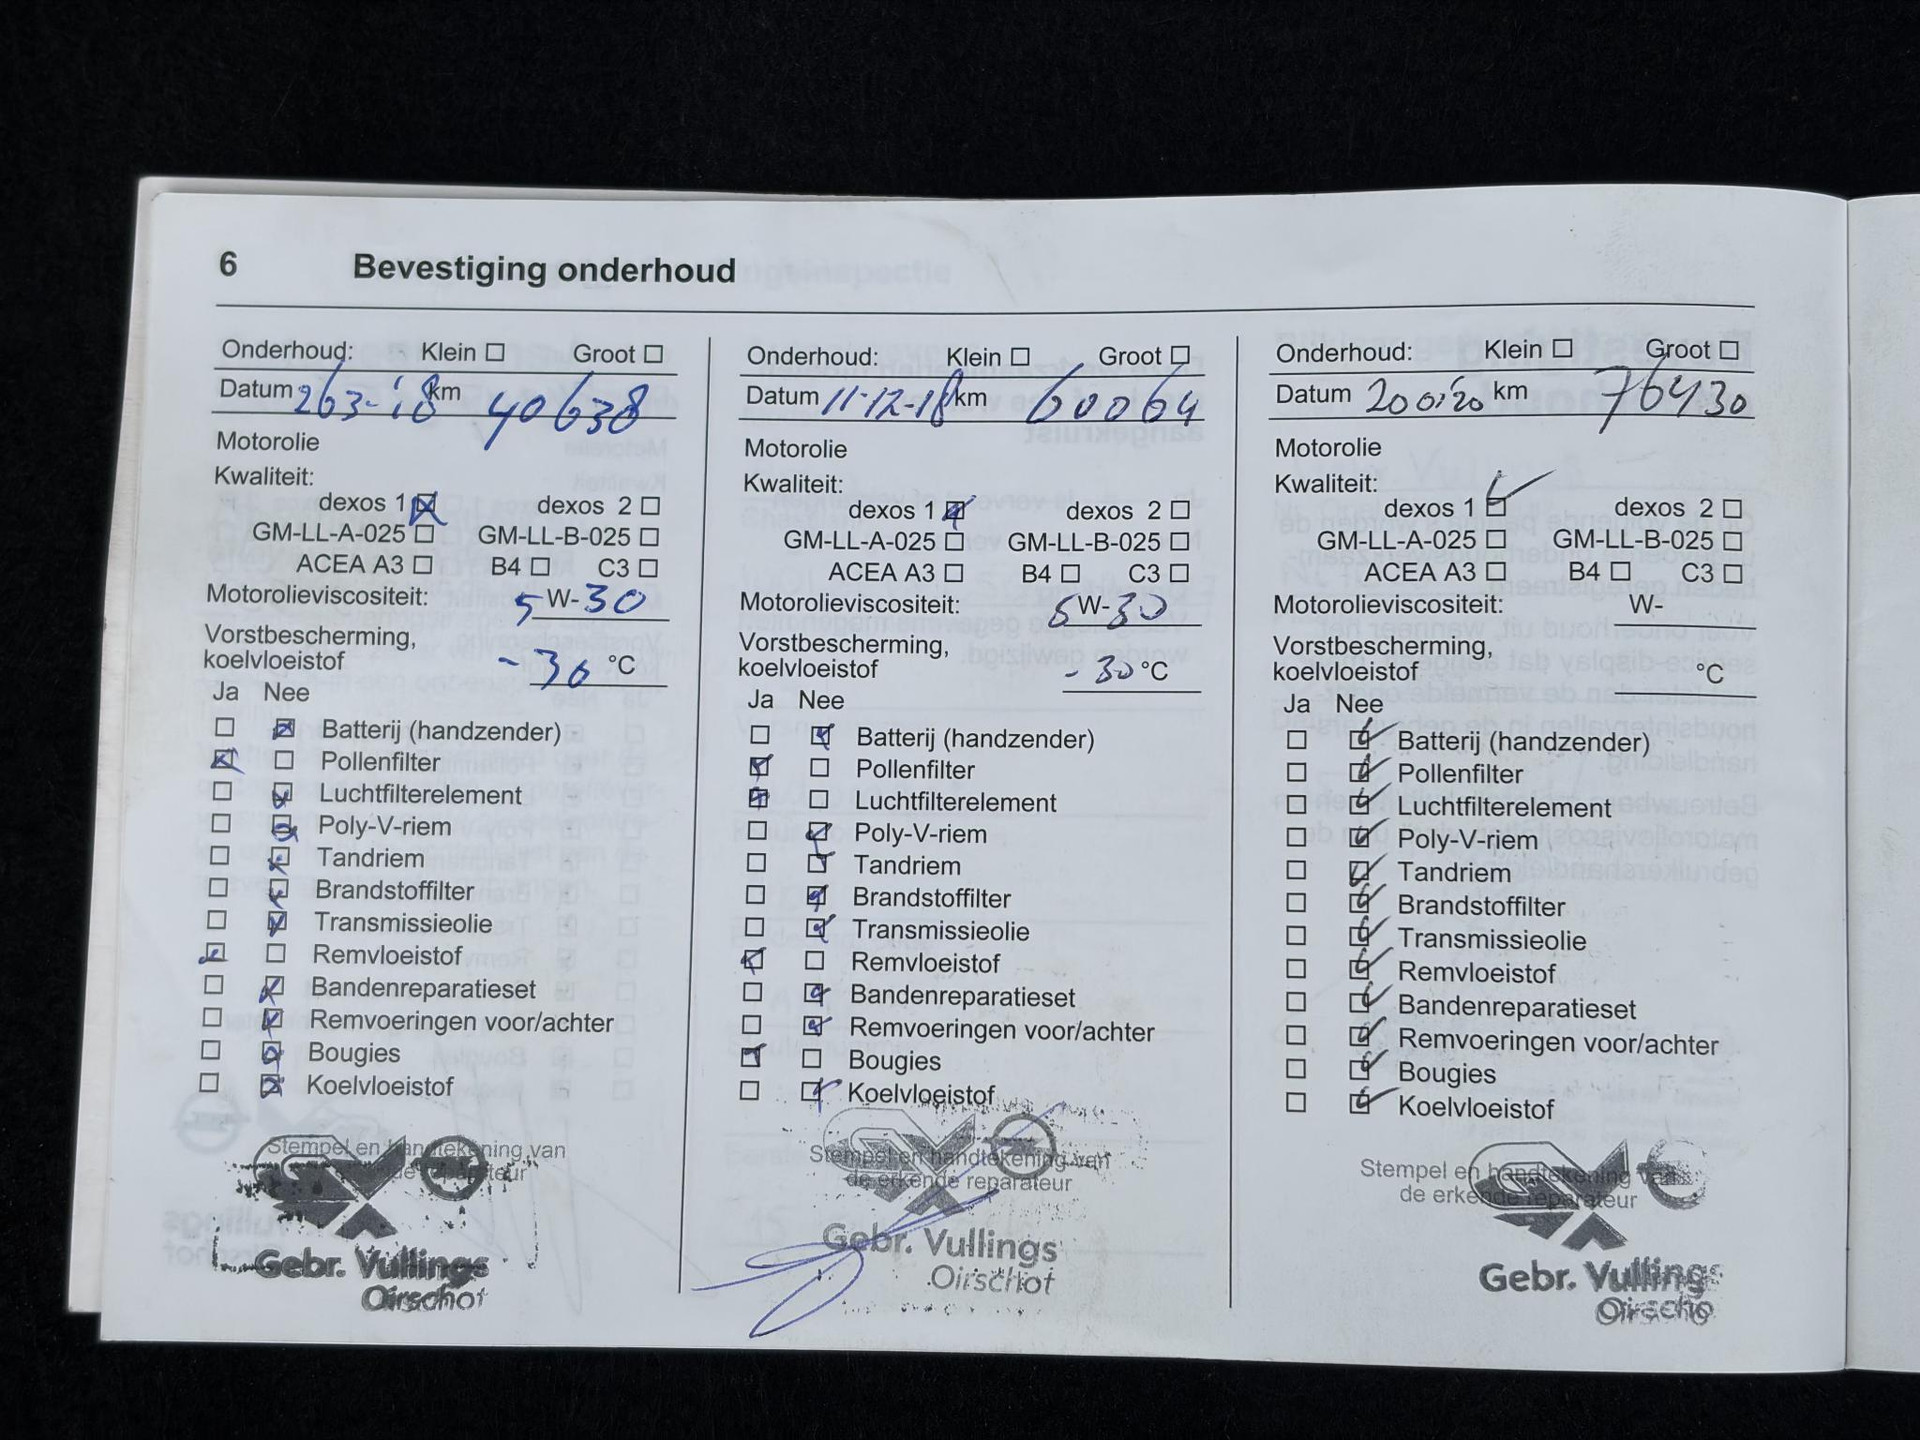 6 Bevestiging onderhoud
Onderhoud: Klein ☐ Groot ☐
Datum 263-'18 km 40638
Motorolie
Kwaliteit:
dexos 1 ☒ dexos 2 ☐
GM-LL-A-025 ☐ GM-LL-B-025 ☐
ACEA A3 ☐ B4 ☐ C3 ☐
Motorolieviscositeit: 5 W-30
Vorstbescherming,
koelvloeistof -30 °C
Ja Nee
☐ ☒ Batterij (handzender)
☒ ☐ Pollenfilter
☐ ☒ Luchtfilterelement
☐ ☒ Poly-V-riem
☐ ☒ Tandriem
☐ ☒ Brandstoffilter
☐ ☒ Transmissieolie
☒ ☐ Remvloeistof
☐ ☒ Bandenreparatieset
☐ ☒ Remvoeringen voor/achter
☐ ☒ Bougies
☐ ☒ Koelvloeistof
Stempel en handtekening van
de erkende reparateur
Gebr. Vullings
Oirschot
Onderhoud: Klein ☐ Groot ☐
Datum 11-12-18 km 60064
Motorolie
Kwaliteit:
dexos 1 ☒ dexos 2 ☐
GM-LL-A-025 ☐ GM-LL-B-025 ☐
ACEA A3 ☐ B4 ☐ C3 ☐
Motorolieviscositeit: 5 W-30
Vorstbescherming,
koelvloeistof -30 °C
Ja Nee
☐ ☒ Batterij (handzender)
☒ ☐ Pollenfilter
☒ ☐ Luchtfilterelement
☐ ☒ Poly-V-riem
☐ ☒ Tandriem
☐ ☒ Brandstoffilter
☐ ☒ Transmissieolie
☒ ☐ Remvloeistof
☐ ☒ Bandenreparatieset
☐ ☒ Remvoeringen voor/achter
☒ ☐ Bougies
☐ ☒ Koelvloeistof
Stempel en handtekening van
de erkende reparateur
Gebr. Vullings
Oirschot
Onderhoud: Klein ☐ Groot ☐
Datum km 76430
Motorolie
Kwaliteit:
dexos 1 ☑ dexos 2 ☐
GM-LL-A-025 ☐ GM-LL-B-025 ☐
ACEA A3 ☐ B4 ☐ C3 ☐
Motorolieviscositeit: W-
Vorstbescherming,
koelvloeistof °C
Ja Nee
☐ ☑ Batterij (handzender)
☐ ☑ Pollenfilter
☐ ☑ Luchtfilterelement
☐ ☑ Poly-V-riem
☐ ☑ Tandriem
☐ ☑ Brandstoffilter
☐ ☑ Transmissieolie
☐ ☑ Remvloeistof
☐ ☑ Bandenreparatieset
☐ ☑ Remvoeringen voor/achter
☐ ☑ Bougies
☐ ☑ Koelvloeistof
Stempel en handtekening van
de erkende reparateur
Gebr. Vullings
Oirscho